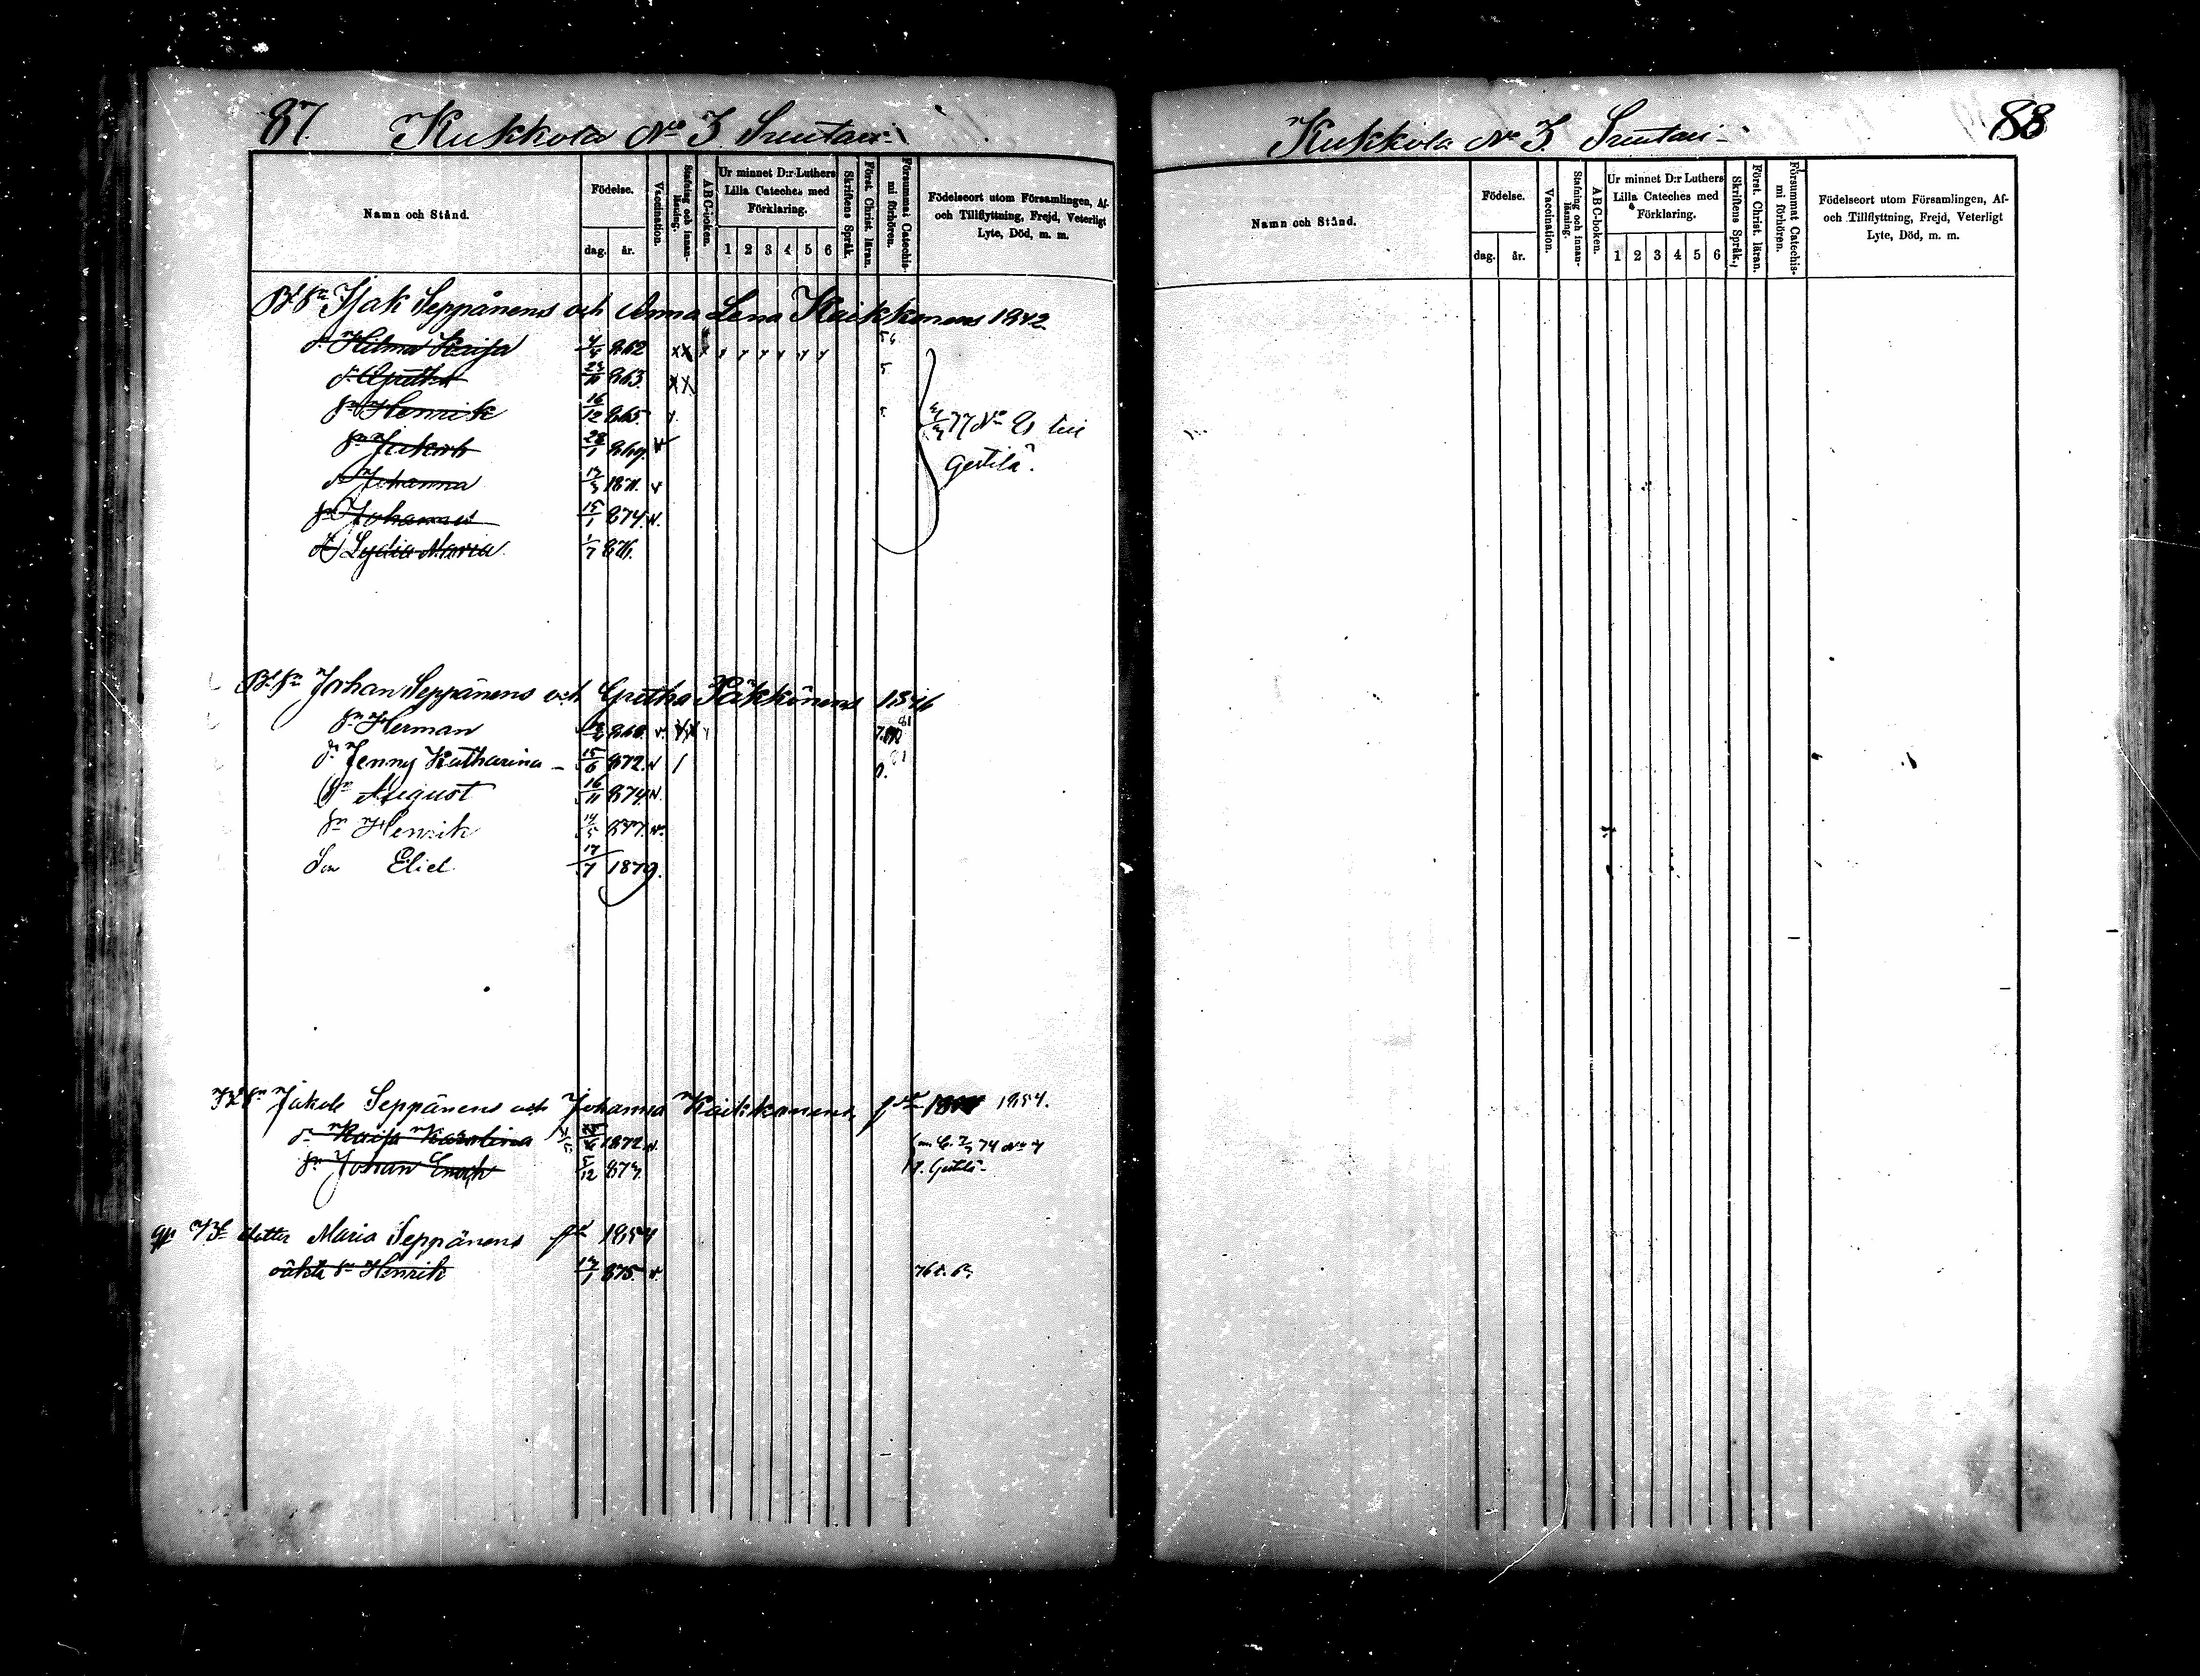 87 Kukkola No 3 Suutari
Namn och Stånd.
Födelse.
dag. år.
Vaccination.
Stafning och innan-läsning.
ABC-boken.
Ur minnet D:r Luthers Lilla Cateches med Förklaring.
1 2 3 4 5 6
Skriftens Språk.
Först. Christ. läran.
Försummat Catechis-mi förhören.
Födelseort utom Församlingen, Af- och Tillflyttning, Frejd, Veterligt Lyte, Död, m. m.
Isak Seppänens och Anna Lena Kaikkonens 1842
dr Hilma Kaisa 862
dr Agatha 23/11 863.
sn Henrik 16/12 865.
sn Jakob 28/1 869.
dr Johanna 1871.
sn Johannes 15/1 874.
dr Lydia Maria 1/7 876.
77 No
Gestilä.
Johan Seppänens och Gretha Päkkönens 1846
sn Herman 868.
dr Jenny Katharina 15/6 872.
sn August 16/11 874.
sn Henrik 14/5 877.
Son Eliel 17/7 1879.
Jakob Seppänens och Johanna Kaikkonens 1854.
dr Kaisa Karolina 1872.
sn Johan Enoch 5/12 873.
74 No 4
Gestilä
dotter Maria Seppänens 1854
oäkta sn Henrik 17/1 875.
76
Kukkola No 3 Suutari 88
Namn och Stånd.
Födelse.
dag. år.
Vaccination.
Stafning och innan-läsning.
ABC-boken.
Ur minnet D:r Luthers Lilla Cateches med Förklaring.
1 2 3 4 5 6
Skriftens Språk.
Först. Christ. läran.
Försummat Catechis-mi förhören.
Födelseort utom Församlingen, Af- och Tillflyttning, Frejd, Veterligt Lyte, Död, m. m.